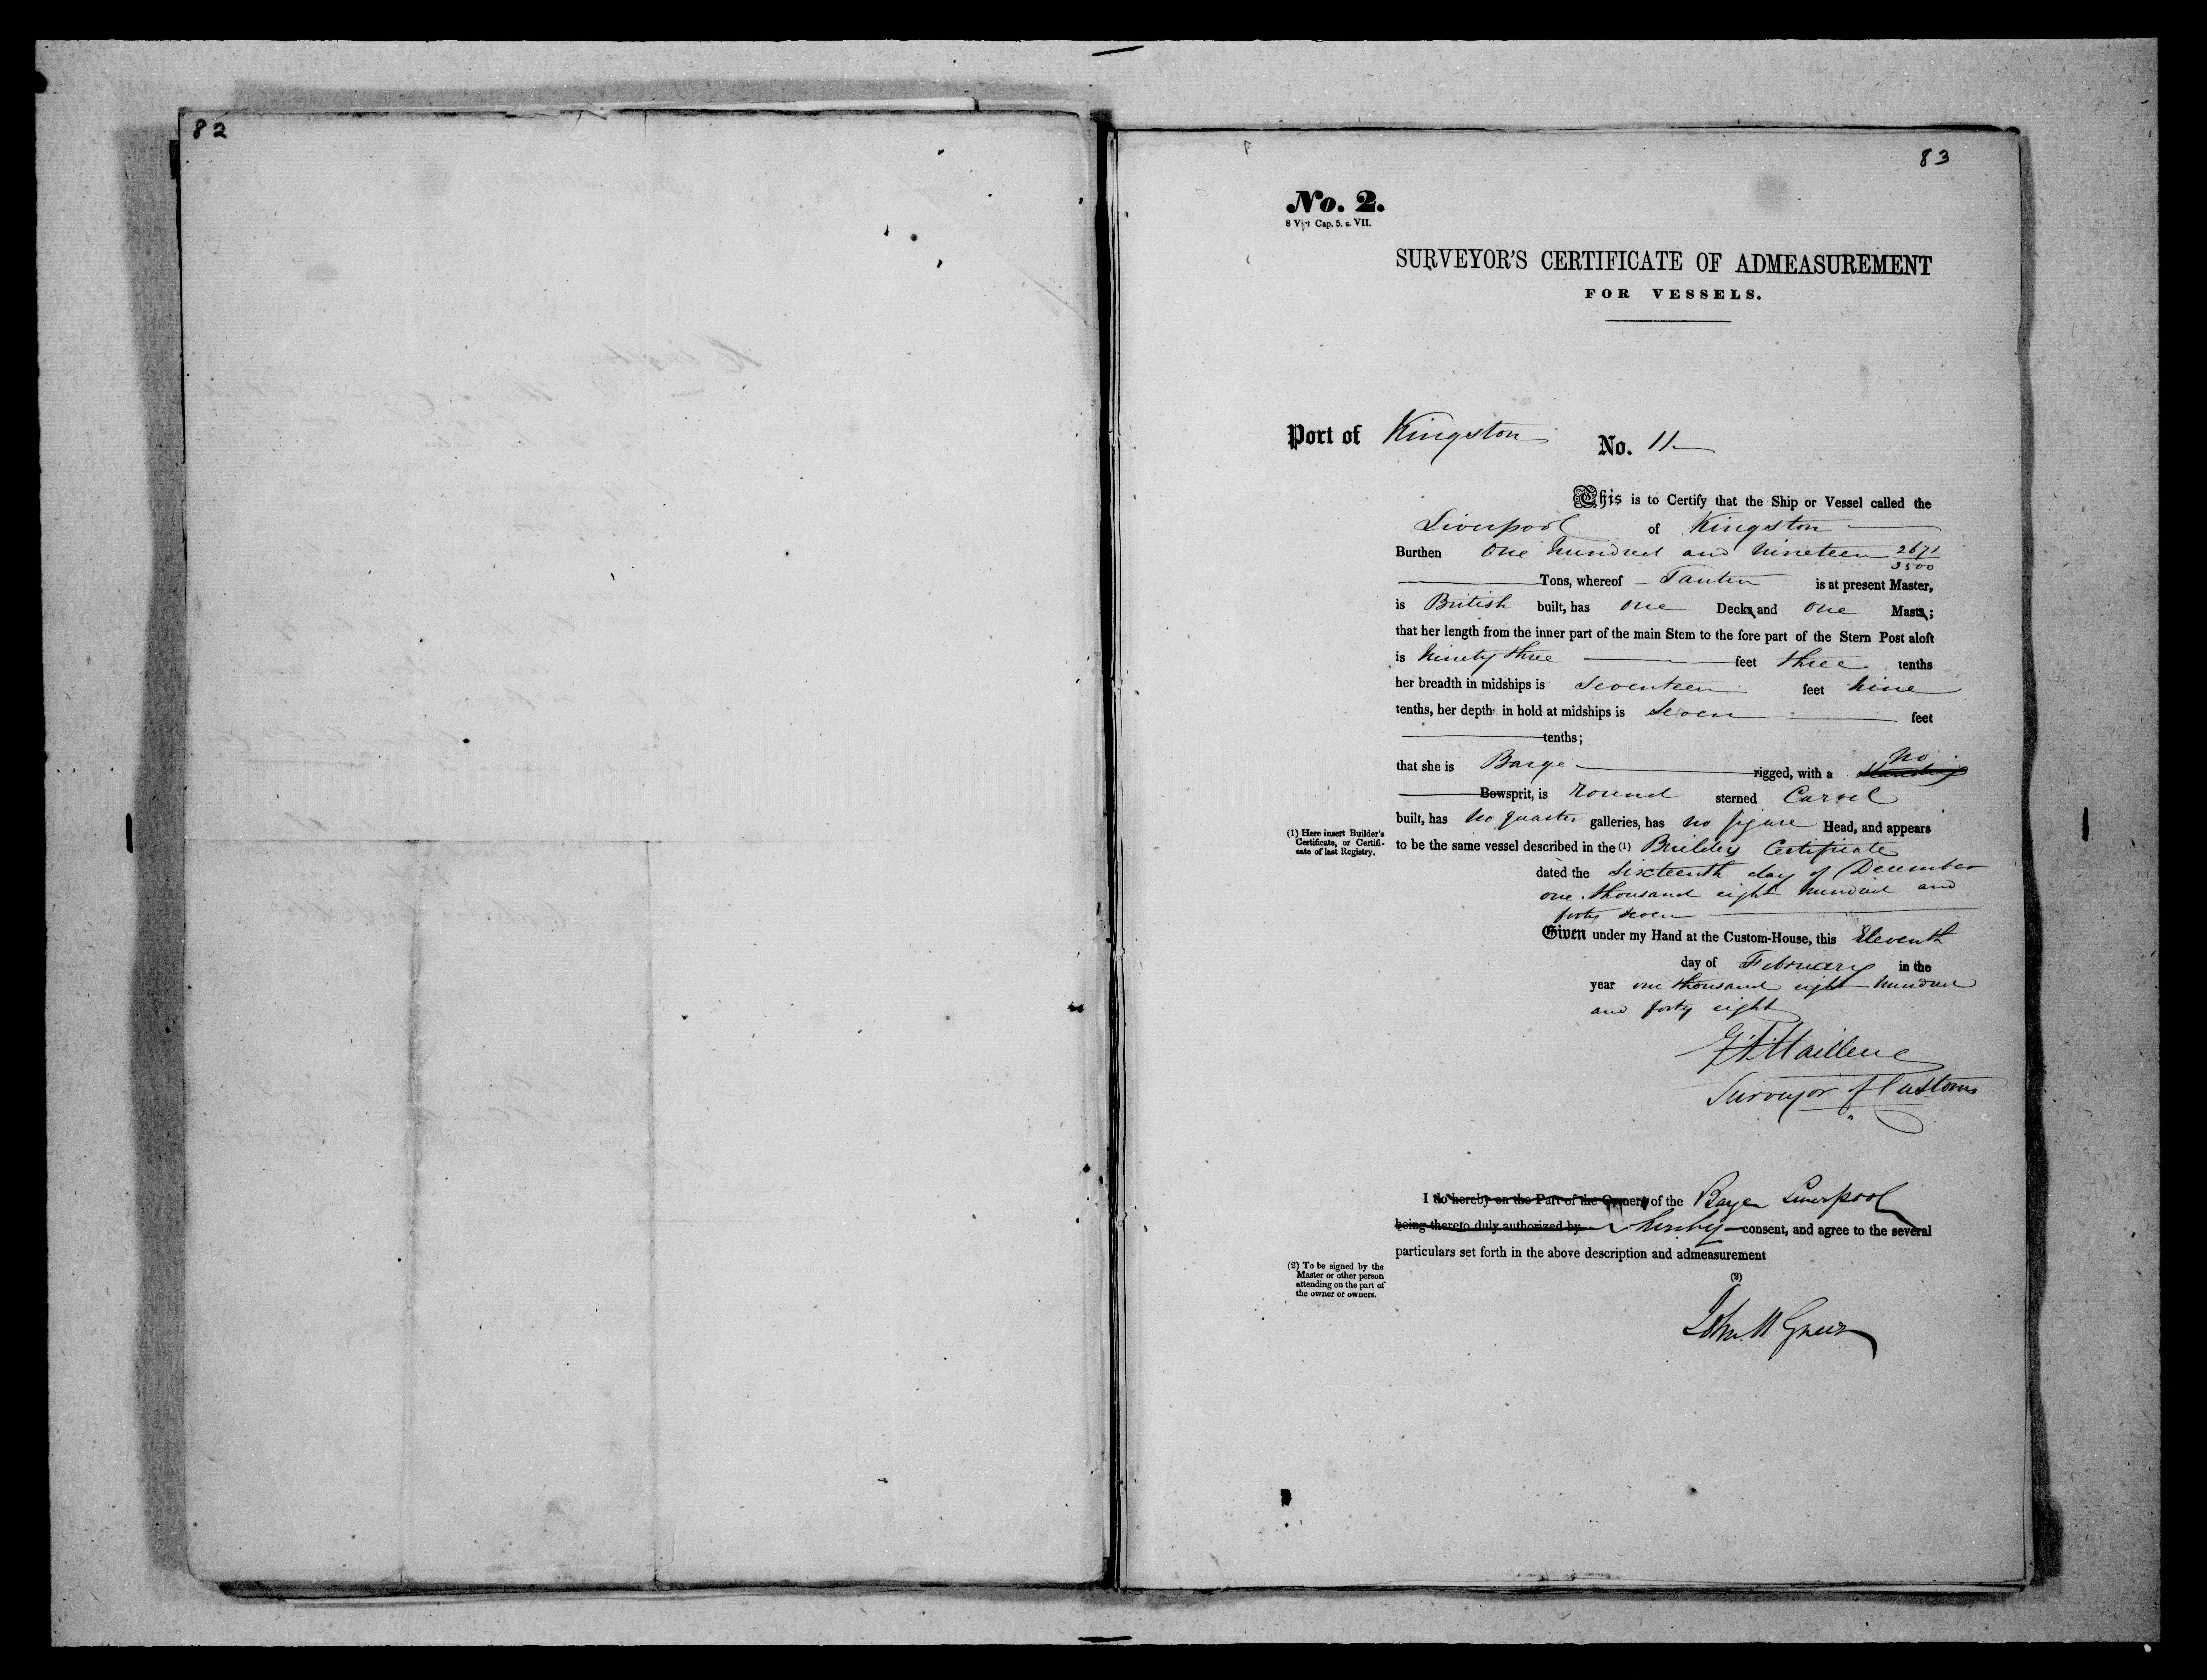 82
83
No. 2.
8 Vict Cap. 5. s. VII.
SURVEYOR'S CERTIFICATE OF ADMEASUREMENT
FOR VESSELS.
Port of Kingston No. 11
This is to Certify that the Ship or Vessel called the
Liverpool of Kingston
Burthen One hundred and nineteen 2671/3500
Tons, whereof is at present Master,
is British built, has one Decks and one Masts;
that her length from the inner part of the main Stem to the fore part of the Stern Post aloft
is Ninety three feet three tenths
her breadth in midships is Seventeen feet nine
tenths, her depth in hold at midships is Seven feet
tenths;
that she is Barge rigged, with a no
Bowsprit, is round sterned Carvel
built, has no quarter galleries, has no figure Head, and appears
(1) Here insert Builder's
Certificate, or Certifi-
cate of last Registry.
to be the same vessel described in the (1) Builders Certificate
dated the Sixteenth day of December
one thousand eight hundred and
forty seven
Given under my Hand at the Custom-House, this Eleventh
day of February in the
year one thousand eight hundred
and forty eight
Surveyor of Customs
I do hereby on the Part of the Owners of the Barge Liverpool
being thereto duly authorized by hereby consent, and agree to the several
particulars set forth in the above description and admeasurement
(2) To be signed by the
Master or other person
attending on the part of
the owner or owners.
(2)
John